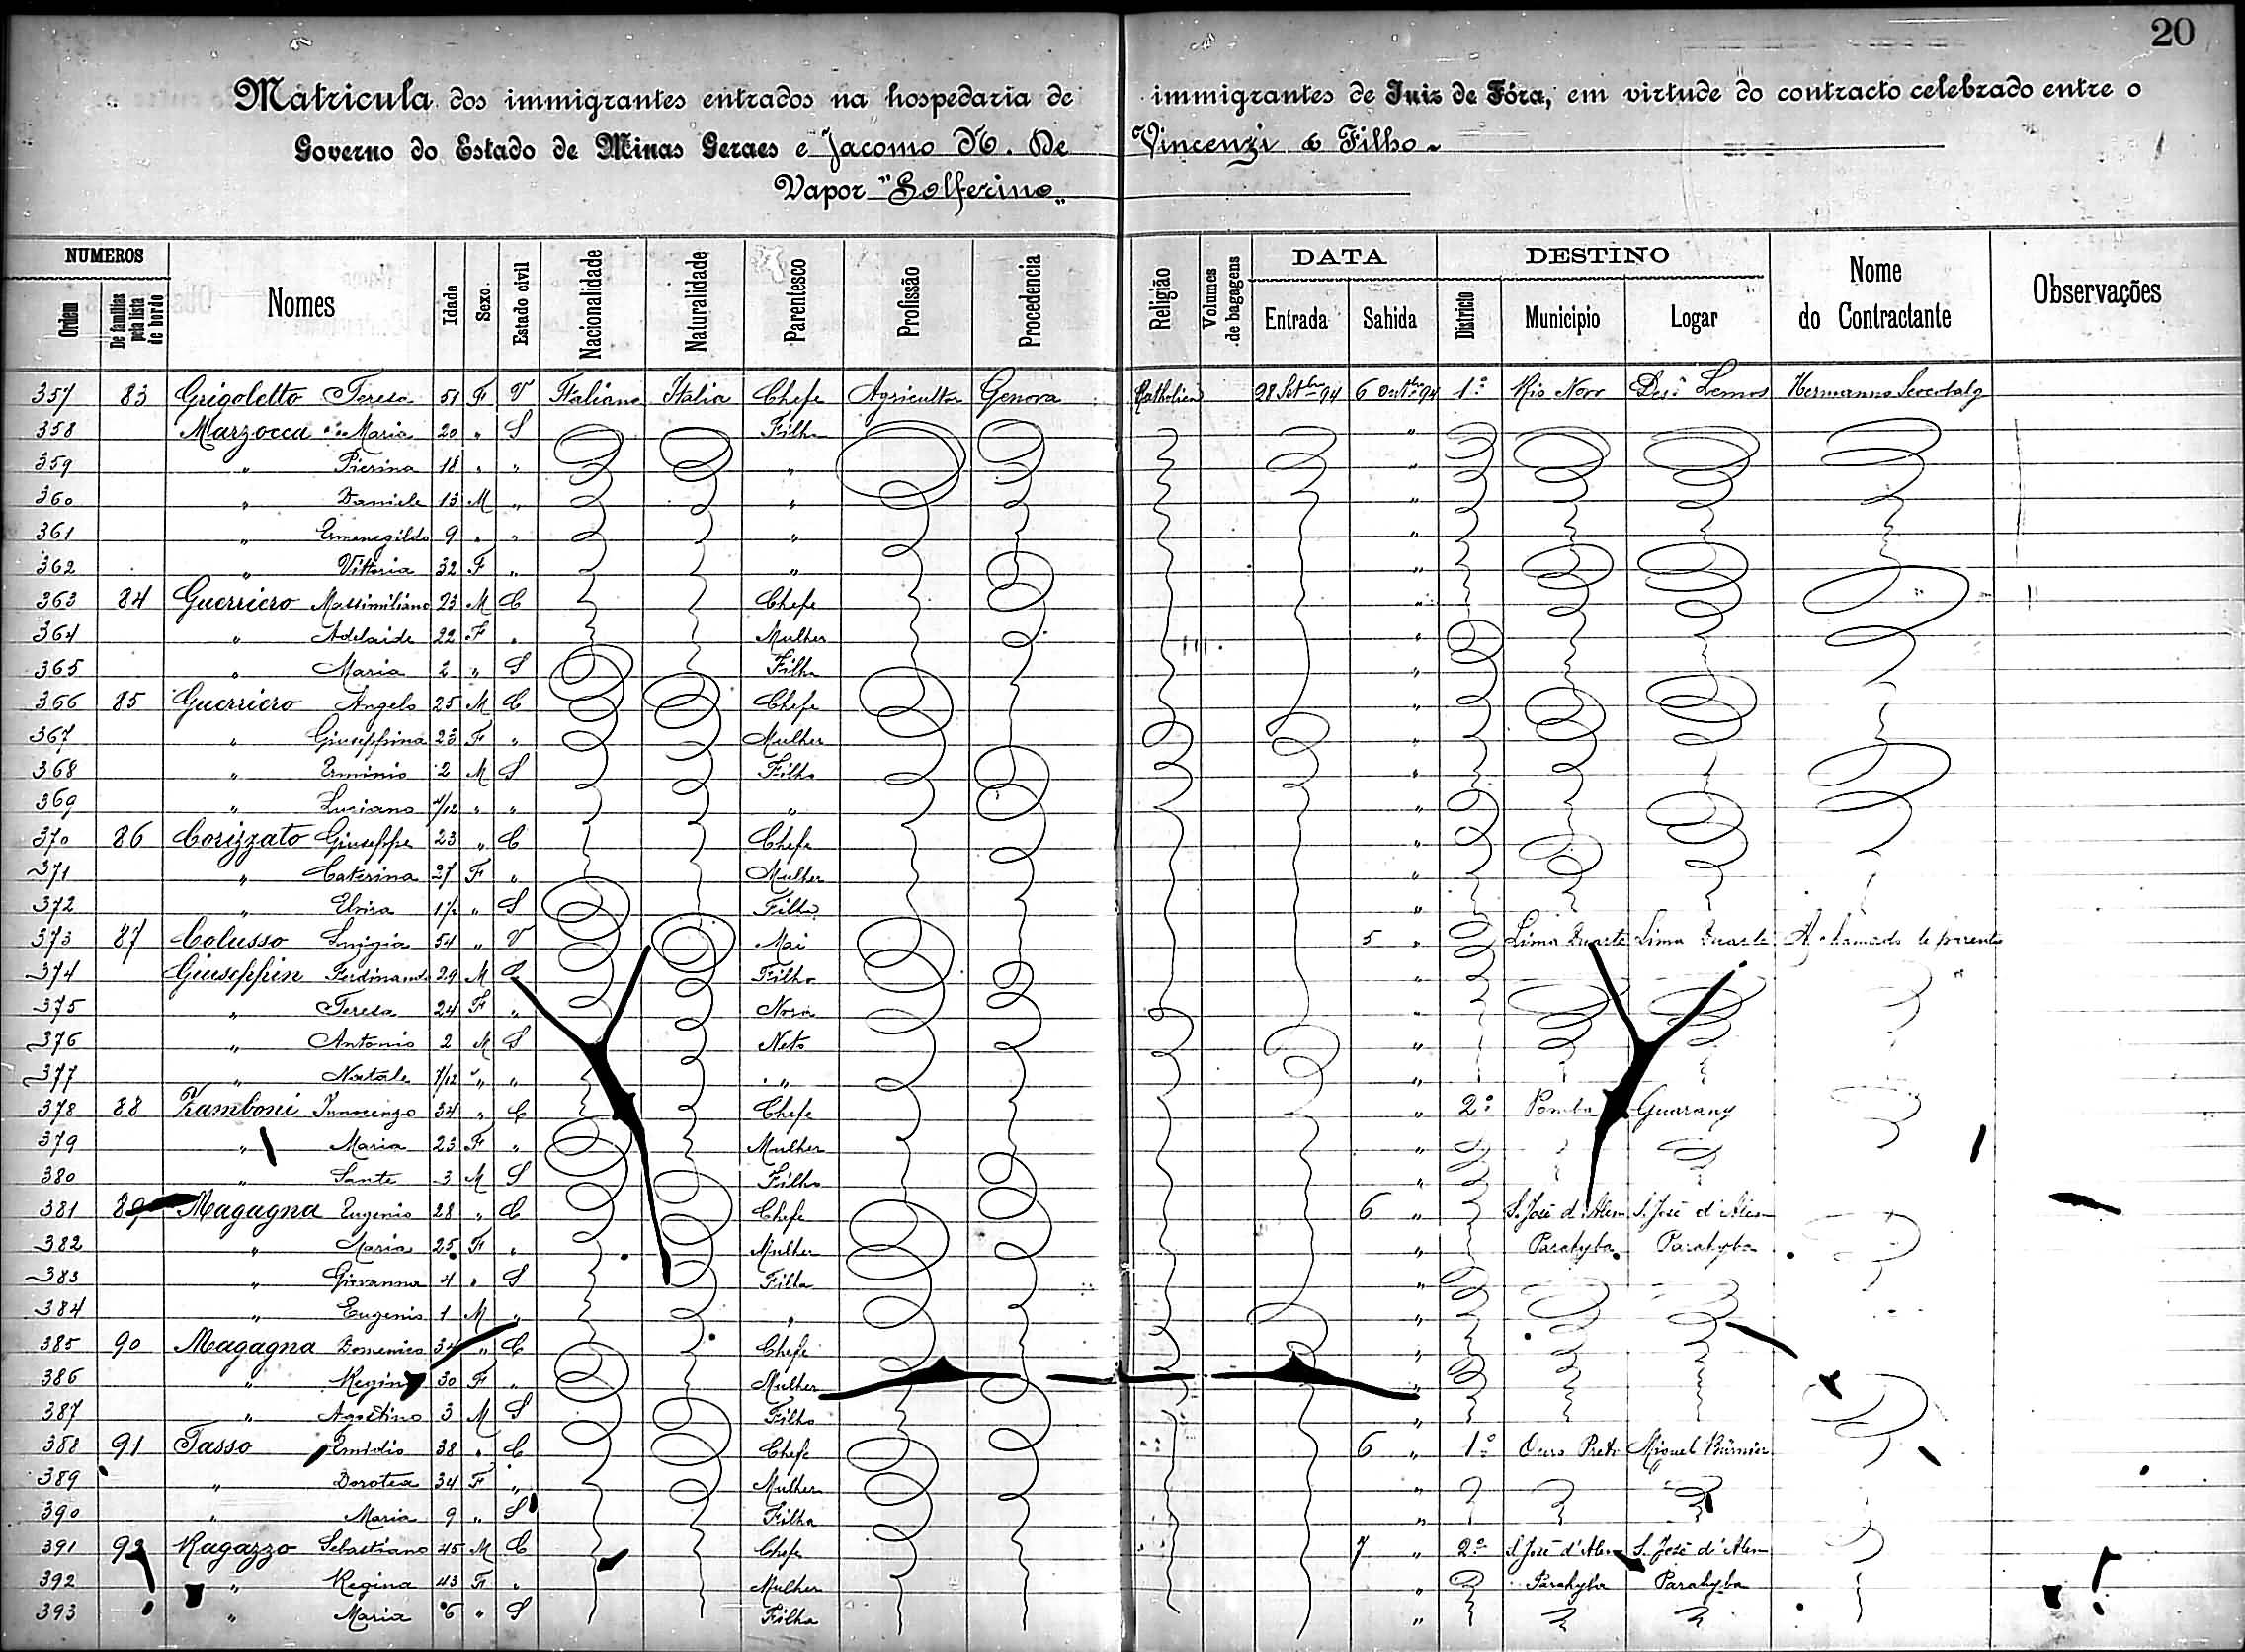 20
Matricula dos immigrantes entrados na hospedaria de immigrantes de Juiz de Fóra, em virtude do contracto celebrado entre o
Governo do Estado de Minas Geraes e Jacomo N. De Vincenzi & Filho
Vapor "Solferino"
NUMEROS Nomes Idade Sexo. Estado civil Nacionalidade Naturalidade Parentesco Profissão Procedencia Religião Volumes de bagagens DATA DESTINO Nome do Contractante Observações
Ordem De familias pela lista de bordo Entrada Sahida Districto Municipio Logar
357 83 Grigoletto Teresa 51 F V Italiana Italia Chefe Agricultor Genova Catholica 28 Setbro 94 6 Outbro 94 1º Rio Novo Lemos Hermanno
358 Marzocca Maria 20 " S Filha "
359 " Pierina 18 " " " "
360 " Daniele 13 M " " "
361 " Ermenegildo 9 " " " "
362 " Vittoria 32 F " " "
363 84 Guerriero Massimiliano 23 M C Chefe "
364 " Adelaide 22 F " Mulher "
365 " Maria 2 " S Filha "
366 85 Guerriero Angelo 25 M C Chefe "
367 " Giuseppina 23 F " Mulher "
368 " Erminio 2 M S Filho "
369 " Luciano /12 " " " "
370 86 Corizzato Giuseppe 23 " C Chefe "
371 " Caterina 27 F " Mulher "
372 " Elvira 1½ " S Filha "
373 87 Colusso Luigia 54 " V Mai 5 " Lima Duarte Lima Duarte A chamado de parente
374 Giuseppin Ferdinando 29 M C Filho "
375 " Teresa 24 F " Nora "
376 " Antonio 2 M S Neto "
377 " Natale 7/12 " " " "
378 88 Zamboni Innocenzo 34 " C Chefe " 2º Pomba Guarany
379 " Maria 23 F " Mulher "
380 " Sante 3 M S Filho "
381 89 Magagna Eugenio 28 " C Chefe 6 " S. José d'Alem S. José d'Alem
382 " Maria 25 F " Mulher " Parahyba Parahyba
383 " Giovanna 4 " S Filha "
384 " Eugenio 1 M " " "
385 90 Magagna Domenico 34 " C Chefe "
386 " Regina 30 F " Mulher "
387 " Agostino 3 M S Filho "
388 91 Tasso Emidio 38 " C Chefe 6 " 1º Ouro Preto Miguel Burnier
389 " Dorotea 34 F " Mulher "
390 " Maria 9 " S Filha "
391 92 Ragazzo Sebastiano 45 M C Chefe 7 " 2º S. José d'Alem S. José d'Alem
392 " Regina 43 F " Mulher " Parahyba Parahyba
393 " Maria 6 " S Filha "